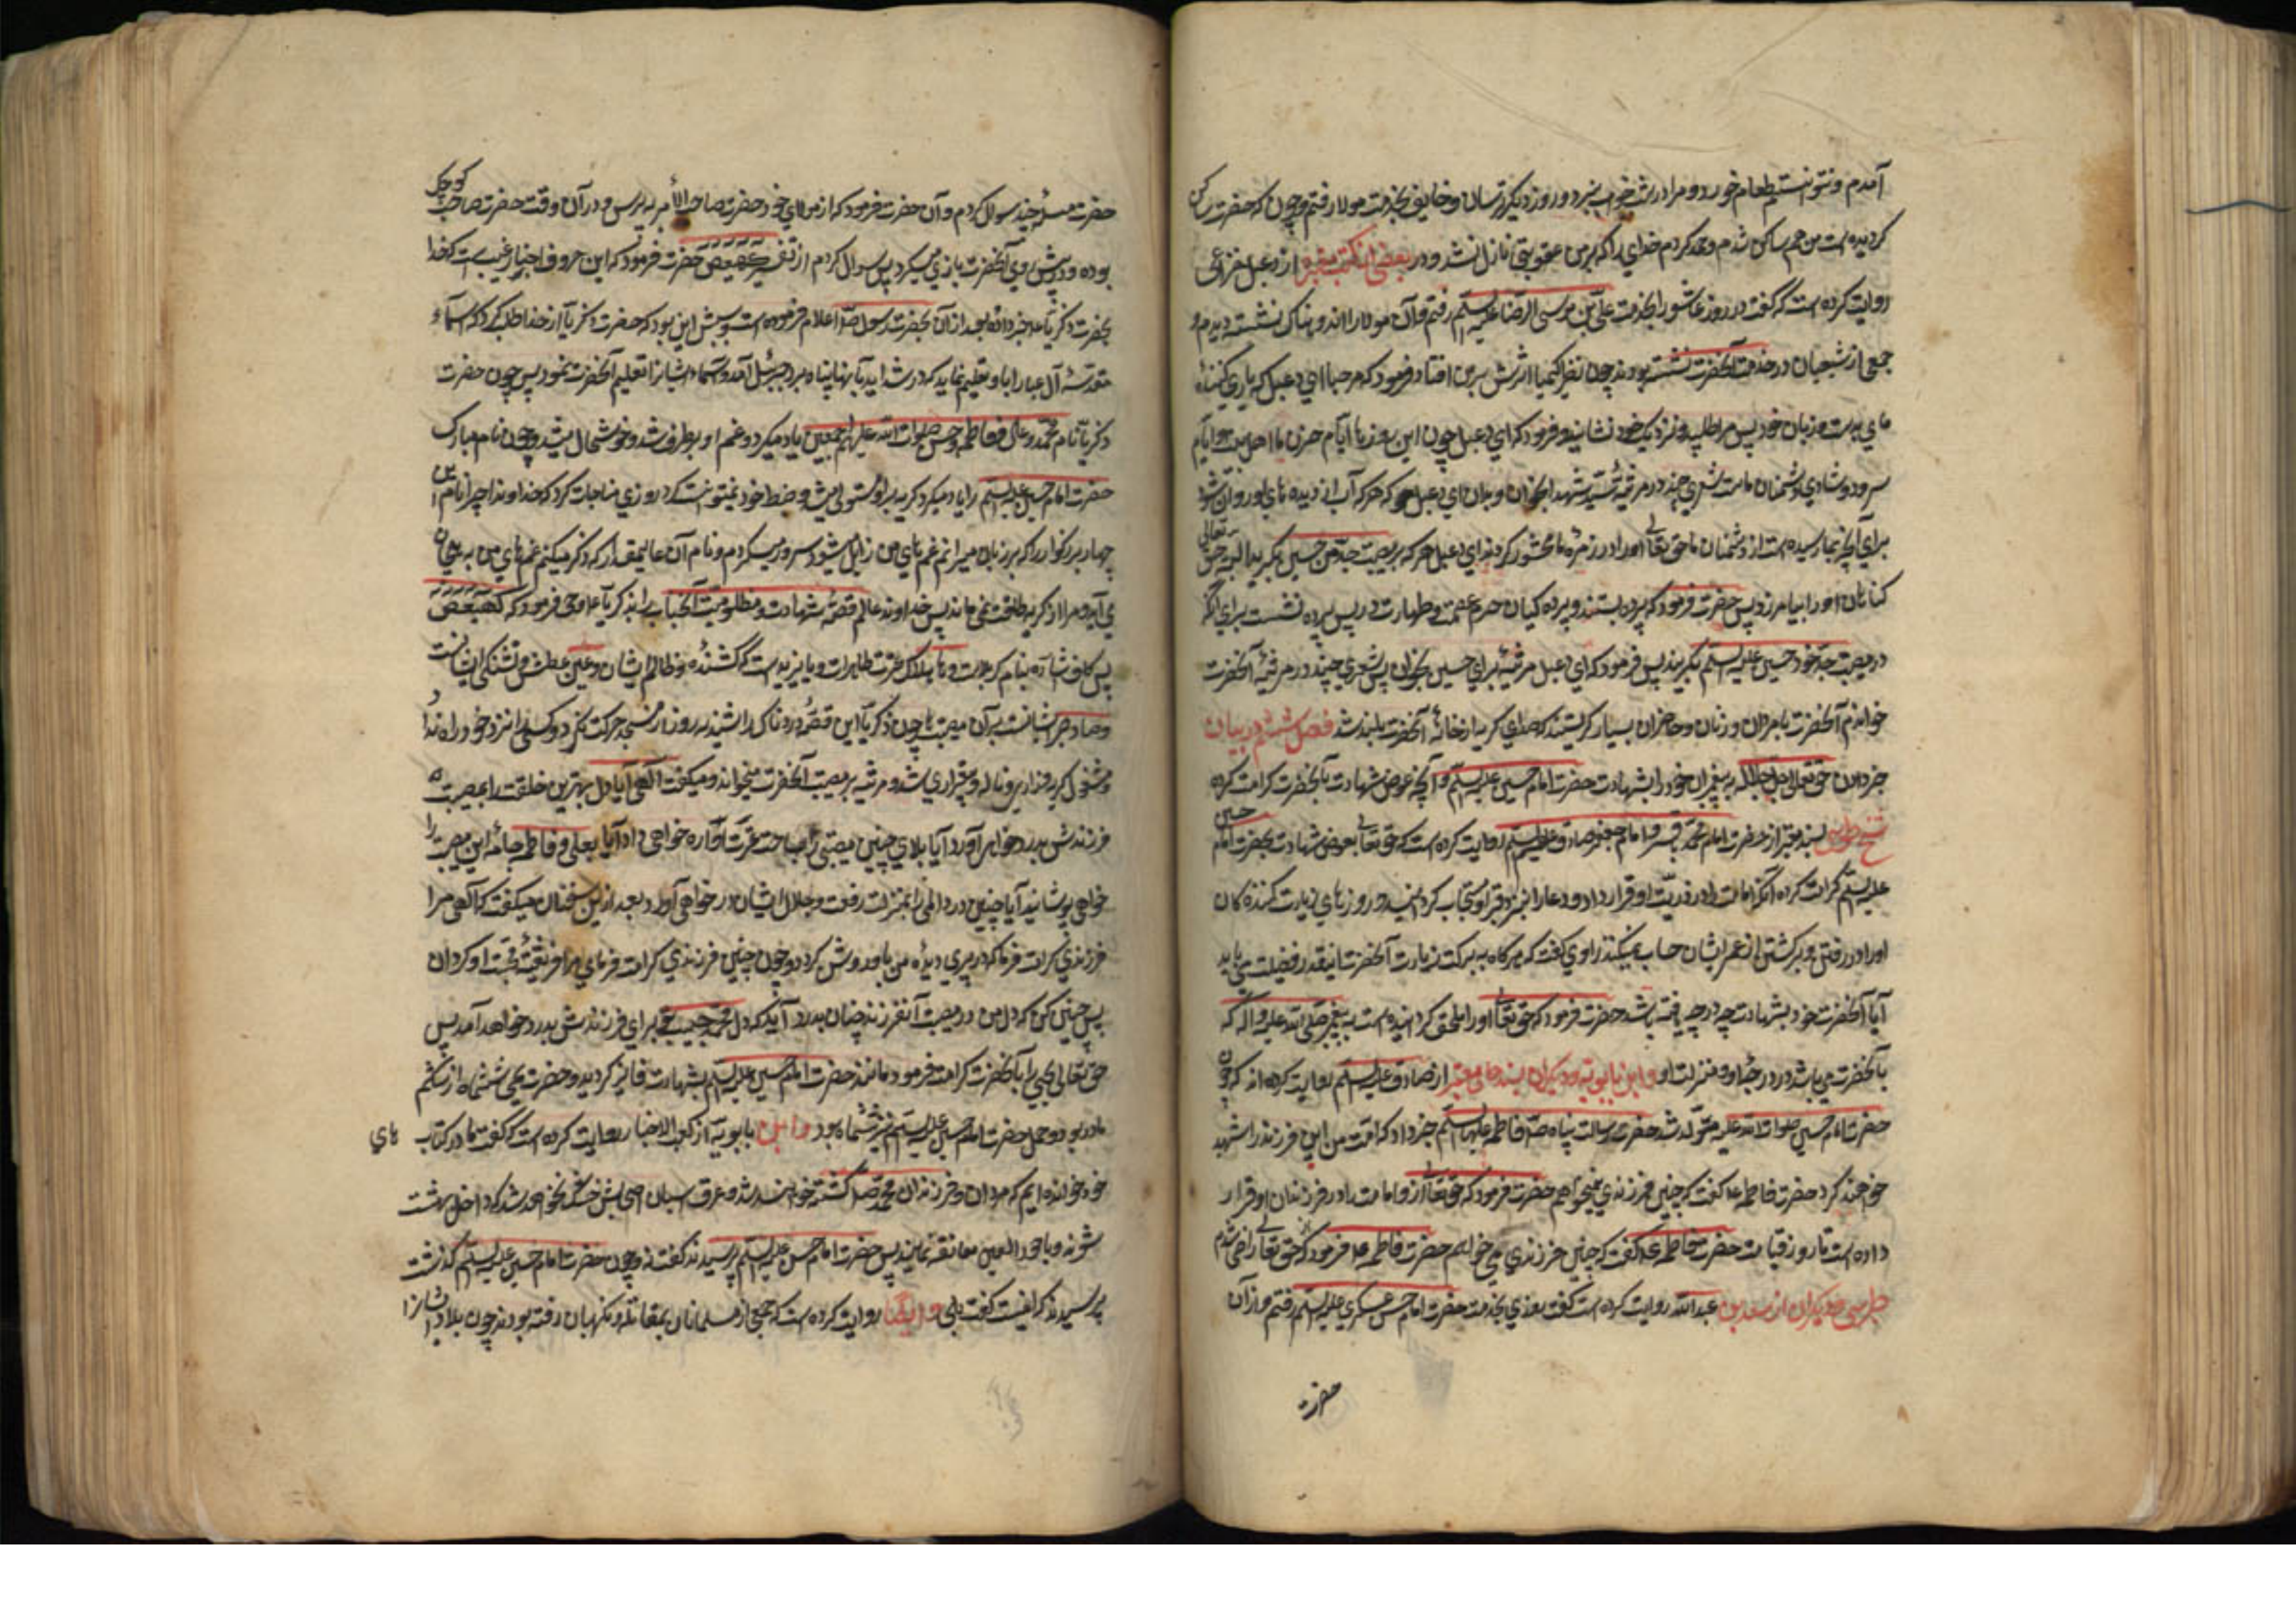 آمدم و نتوانستم طعام خورد و مرا در شب خواب نبرد و روز دیگر ترسان و خایف بخدمت مولا رفتم و چون که حضرت ساکن
گردیده است من هم ساکن شدم و حمد کردم خدای را که بر من عقوبتی نازل نشد و در بعضی از کتب معتبره از دعبل خزاعی
روایت کرده است که گفت در روز عاشورا بخدمت علی بن موسی الرضا علیه السلم رفتم و آن مولا را اندوهناک نشسته دیدم و
جمعی از شیعیان در خدمت آنحضرت نشسته بودند چون نظر کیمیا اثرش بر من افتاد فرمود که مرحبا ای دعبل که یاری کننده
مای بدست و زبان خود پس مرا طلبید و نزدیک خود نشانید و فرمود که ای دعبل چون این روزها ایام حزن ما اهل بیت و ایام
سرور و شادی دشمنان ماست شعری چند در مرثیه سید شهدا بخوان و بدان ای دعبل که هر که آب از دیده های او روان شود
برای آنچه بما رسیده است از دشمنان ما حق تعالی او را در زمره ما محشور گرداند ای دعبل هر که بر مصیبت جد من حسین بگرید البته حق تعالی
گناهان او را بیامرزد پس حضرت فرمود که پرده بستند و پرده کیان حرم عصمت و طهارت در پس پرده نشست برای آنکه
در مصیبت جد خود حسین علیه السلم بگریند پس فرمود که ای دعبل مرثیه برای حسین بخوان پس شعری چند در مرثیه آنحضرت
خواندم آنحضرت با مردان و زنان و حاضران بسیار گریستند که صدای گریه از خانه آنحضرت بلند شد فصل ششم در بیان
خبر دادن حق تعالی جل جلاله به پیغمبران خود را بشهادت حضرت امام حسین علیه السلم و آنچه عوض شهادت بآنحضرت کرامت کرده
شیخ طوسی بسند معتبر از حضرت امام محمد باقر و امام جعفر صادق علیهم السلم روایت کرده است که حق تعالی بعوض شهادت بحضرت امام حسین
علیه السلم کرامت کرده آنکه امامت را در ذریت او قرار داد و دعا را نزد قبر او مستجاب گردانید و روزهای زیارت کننده کان
او را در رفتن و برگشتن از عمر ایشان حساب نمیکند راوی گفت که هرگاه به برکت زیارت آنحضرت اینقدر فضیلت می یابند
آیا آنحضرت خود بشهادت چه درجه یافته باشد حضرت فرمود که حق تعالی او را ملحق گردانیده است به پیغمبر صلی الله علیه و آله که
با آنحضرت می باشد در درجه او و منزلت او و ابن بابویه و دیگران بسندهای معتبر از صادق علیه السلم روایت کرده اند که چون
حضرت امام حسین صلوات الله علیه متولد شد حضرت رسالت پناه ص فاطمه علیها السلم خبر داد که امت من این فرزند را شهید
خواهند کرد حضرت فاطمه ع گفت که چنین فرزندی نمیخواهم حضرت فرمود که حق تعالی از و امامت را در فرزندان او قرار
داده است تا روز قیامت حضرت فاطمه ع گفت که چنین فرزندی می خواهم حضرت فاطمه ع فرمود که حق تعالی راضی شدم
طبرسی و دیگران از سعد بن عبدالله روایت کرده است گفت روزی بخدمت حضرت امام حسن عسکری علیه السلم رفتم و از آن
حضرت
حضرت مسئله چند سوال کردم و آن حضرت فرمود که از مولای خود حضرت صاحب الأمر به پرس و در آن وقت حضرت صاحب کوچک
بوده و در پیش روی آنحضرت بازی میکرد پس سوال کردم از تفسیر کهیعص حضرت فرمود که این حروف اخبار غیب است که خدا
بحضرت ذکریا ع خبر داده بعد از آن بحضرت رسول ص اعلام فرموده است و سببش این بود که حضرت ذکریا از خدا طلب کرد که اسماء
مقدسه آل عبا را باو تعلیم نماید که در شداید بآنها پناه برد جبرئیل آمد و اسماء ایشان را تعلیم آنحضرت نمود پس چون حضرت
ذکریا نام محمد و علی و فاطمه و حسن صلوات الله علیهم اجمعین یاد میکرد غم او برطرف شد و خوشحال میشد و چون نام مبارک
حضرت امام حسین علیه السلم را یاد میکرد گریه بر او مستولی میشد و ضبط خود نمیتوانست کرد روزی مناجات کرد که خداوندا چرا نام این
چهار بزرکوار را که بر زبان میرانم غمهای من زایل میشود و سرور میکردم و نام آن عالیمقدار که ذکر میکنم غمهای من به هیجان
می آید و مرا از گریه طاقت نمی ماند پس خداوند عالم قصه شهادت و مظلومیت آنجناب را به ذکریا ع وحی فرمود که کهیعص
پس کاف اشاره بنام کربلاست و ها هلاک عترت طاهرات و یا یزید است که کشنده و ظالم ایشان و عین عطش و تشنکی ایشانست
و صاد صبر ایشانست بر آن مصیبتها چون ذکریا این قصه دردناک را شنید سه روز از مسجد حرکت نکرد و کسی را نزد خود راه نداد
و مشغول گریه و زاری و ناله و بیقراری شد و مرثیه بر مصیبت آنحضرت میخواند و میکفت الهی آیا دل بهترین خلقت را بمصیبت
فرزندش بدرد خواهی آورد آیا بلای چنین مصیبتی را بساحت عزت آنها راه خواهی داد آیا بعلی و فاطمه جامه این مصیبت را
خواهی پوشانید آیا چنین درد و المی را بمنزلت رفعت و جلال ایشان در خواهی آورد بعد از این سخنان میکفت که الهی مرا
فرزندی کرامت فرما که در پیری دیده من باو روشن کردد و چون چنین فرزندی کرامت فرمای مرا فریفته محبت او کردان
پس چنین کن که دل من در مصیبت آن فرزند چنان بدرد آید که دل محمد حبیب تو برای فرزندش بدرد خواهد آمد پس
حق تعالی یحیی را بآنحضرت کرامت فرمود مانند حضرت امام حسین علیه السلم بشهادت فایز کردید و حضرت یحیی ششماه از شکم
مادر بود و حمل حضرت امام حسین علیه السلم نیز ششماه بود و ابن بابویه از کعب الاخبار روایت کرده است که گفت ما در کتاب های
خود خوانده ایم که مردان و فرزندان محمد ص کشته خواهند شد و عرق اسبان اصحابش خشک نخواهد شد که داخل بهشت
شوند و با حور العین معانقه نمایند پس حضرت امام حسن علیه السلم پرسیدند گفت نه و چون حضرت امام حسین علیه السلم گذشت
پرسیدند که اینست گفت بلی و ایضا روایت کرده است که جمعی از مسلمانان بمقاتله و نکهبان رفته بودند چون بلاد ایشان را